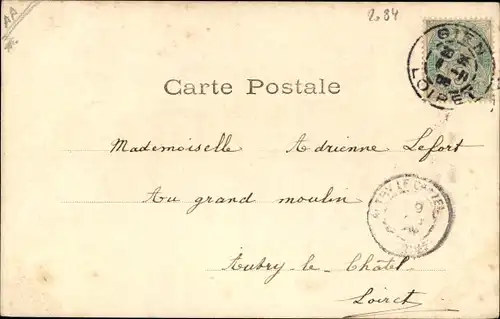 AA
2.84
GIEN
LOIRET
Carte Postale
Mademoiselle Adrienne Lefort
Au grand moulin
Autry-le-Châtel
Loiret